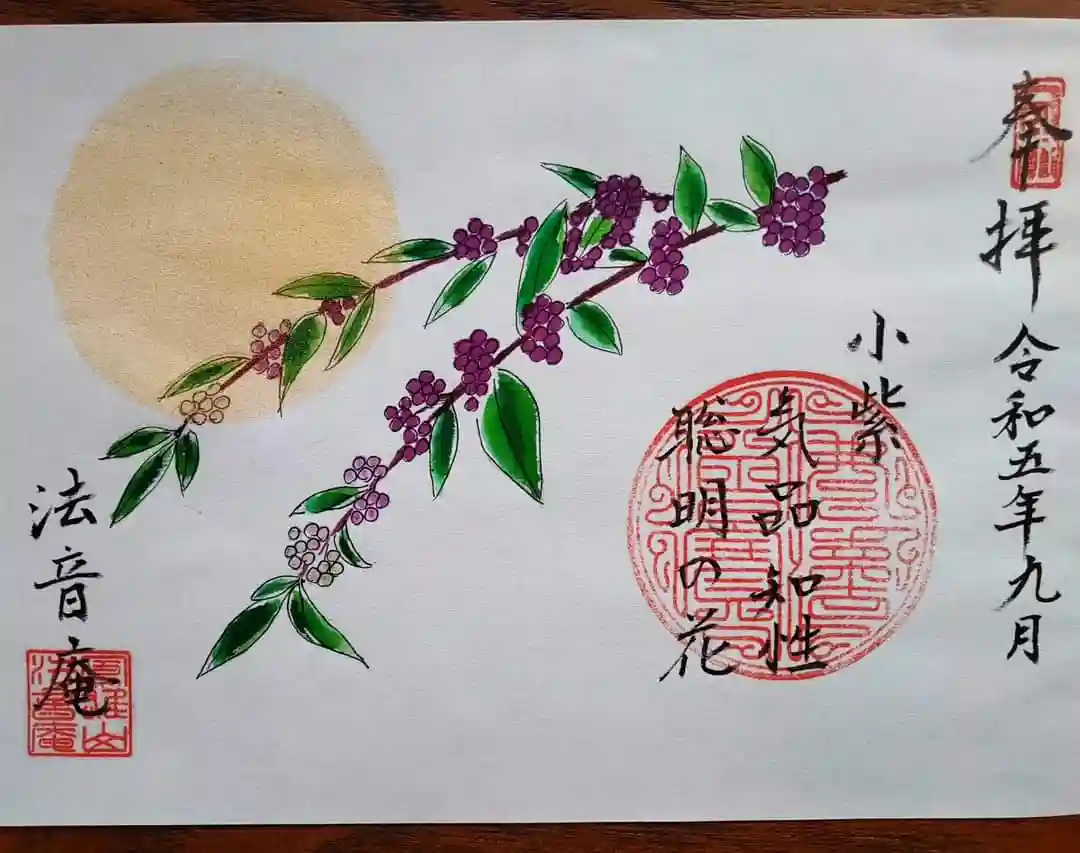 奉拝 令和五年九月
小紫
気品 知性
聡明の花
法音庵